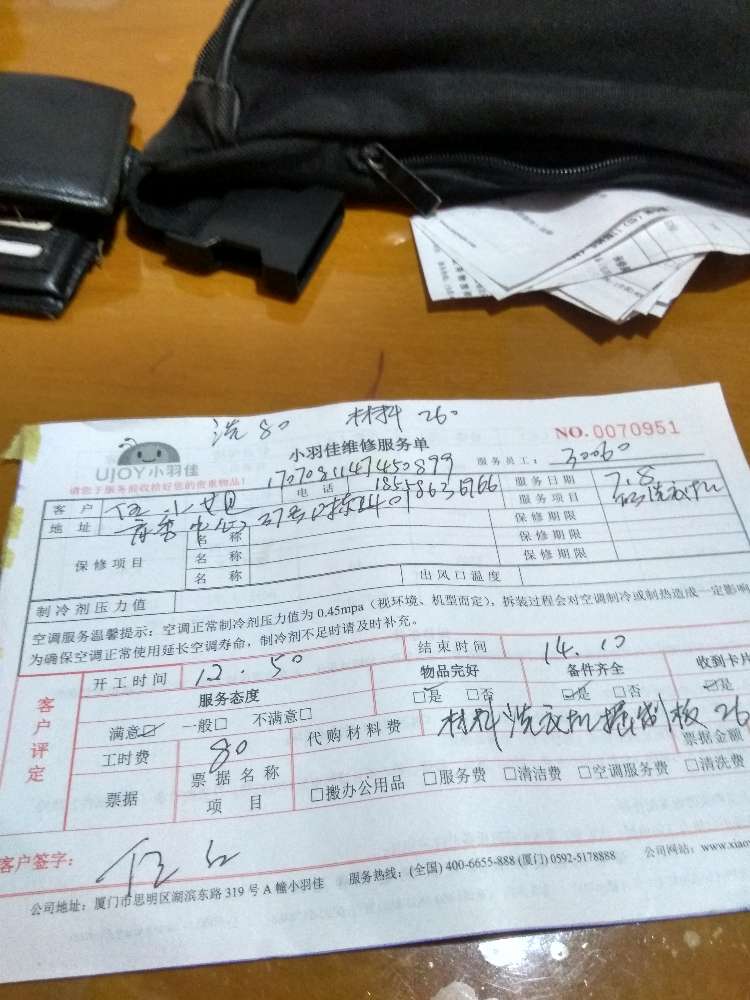 洗 80 材料 260
NO.0070951
UJOY小羽佳
小羽佳维修服务单
请您于服务前收拾好您的贵重物品!
1707081147450899
服务员工: 30060
客户 任小姐 电话 18558636966 服务日期 7.8
地址 37号 栋1401 服务项目 洗衣机
保修项目 名称 保修期限
名称 保修期限
名称 保修期限
出风口温度
制冷剂压力值
空调服务温馨提示:空调正常制冷剂压力值为 0.45mpa(视环境、机型而定),拆装过程会对空调制冷或制热造成一定影响
为确保空调正常使用延长空调寿命,制冷剂不足时请及时补充。
开工时间 12.50 结束时间 14.10
客户评定
服务态度 物品完好 备件齐全 收到卡片
满意☑ 一般□ 不满意□ ☑是 □否 ☑是 □否 ☑是
工时费 80 代购材料费 材料洗衣机控制板 26
票据 票据名称 票据金额
项目 □搬办公用品 □服务费 □清洁费 □空调服务费 □清洗费
客户签字: 任
公司地址:厦门市思明区湖滨东路 319 号 A 幢小羽佳 服务热线:(全国) 400-6655-888 (厦门) 0592-5178888 公司网站:www.xiao